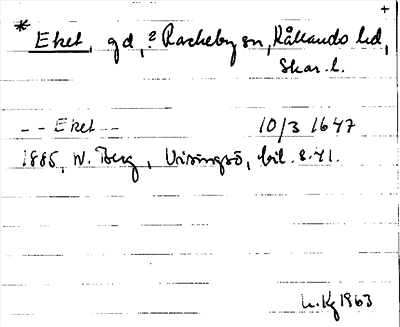 +
* Eket, gd, ? Rackeby sn, Kållands hd,
Skar. l.
-- Eket -- 10/3 1647
1885, W. Berg, Visingsö, bil. 8.41.
L. Kg 1963